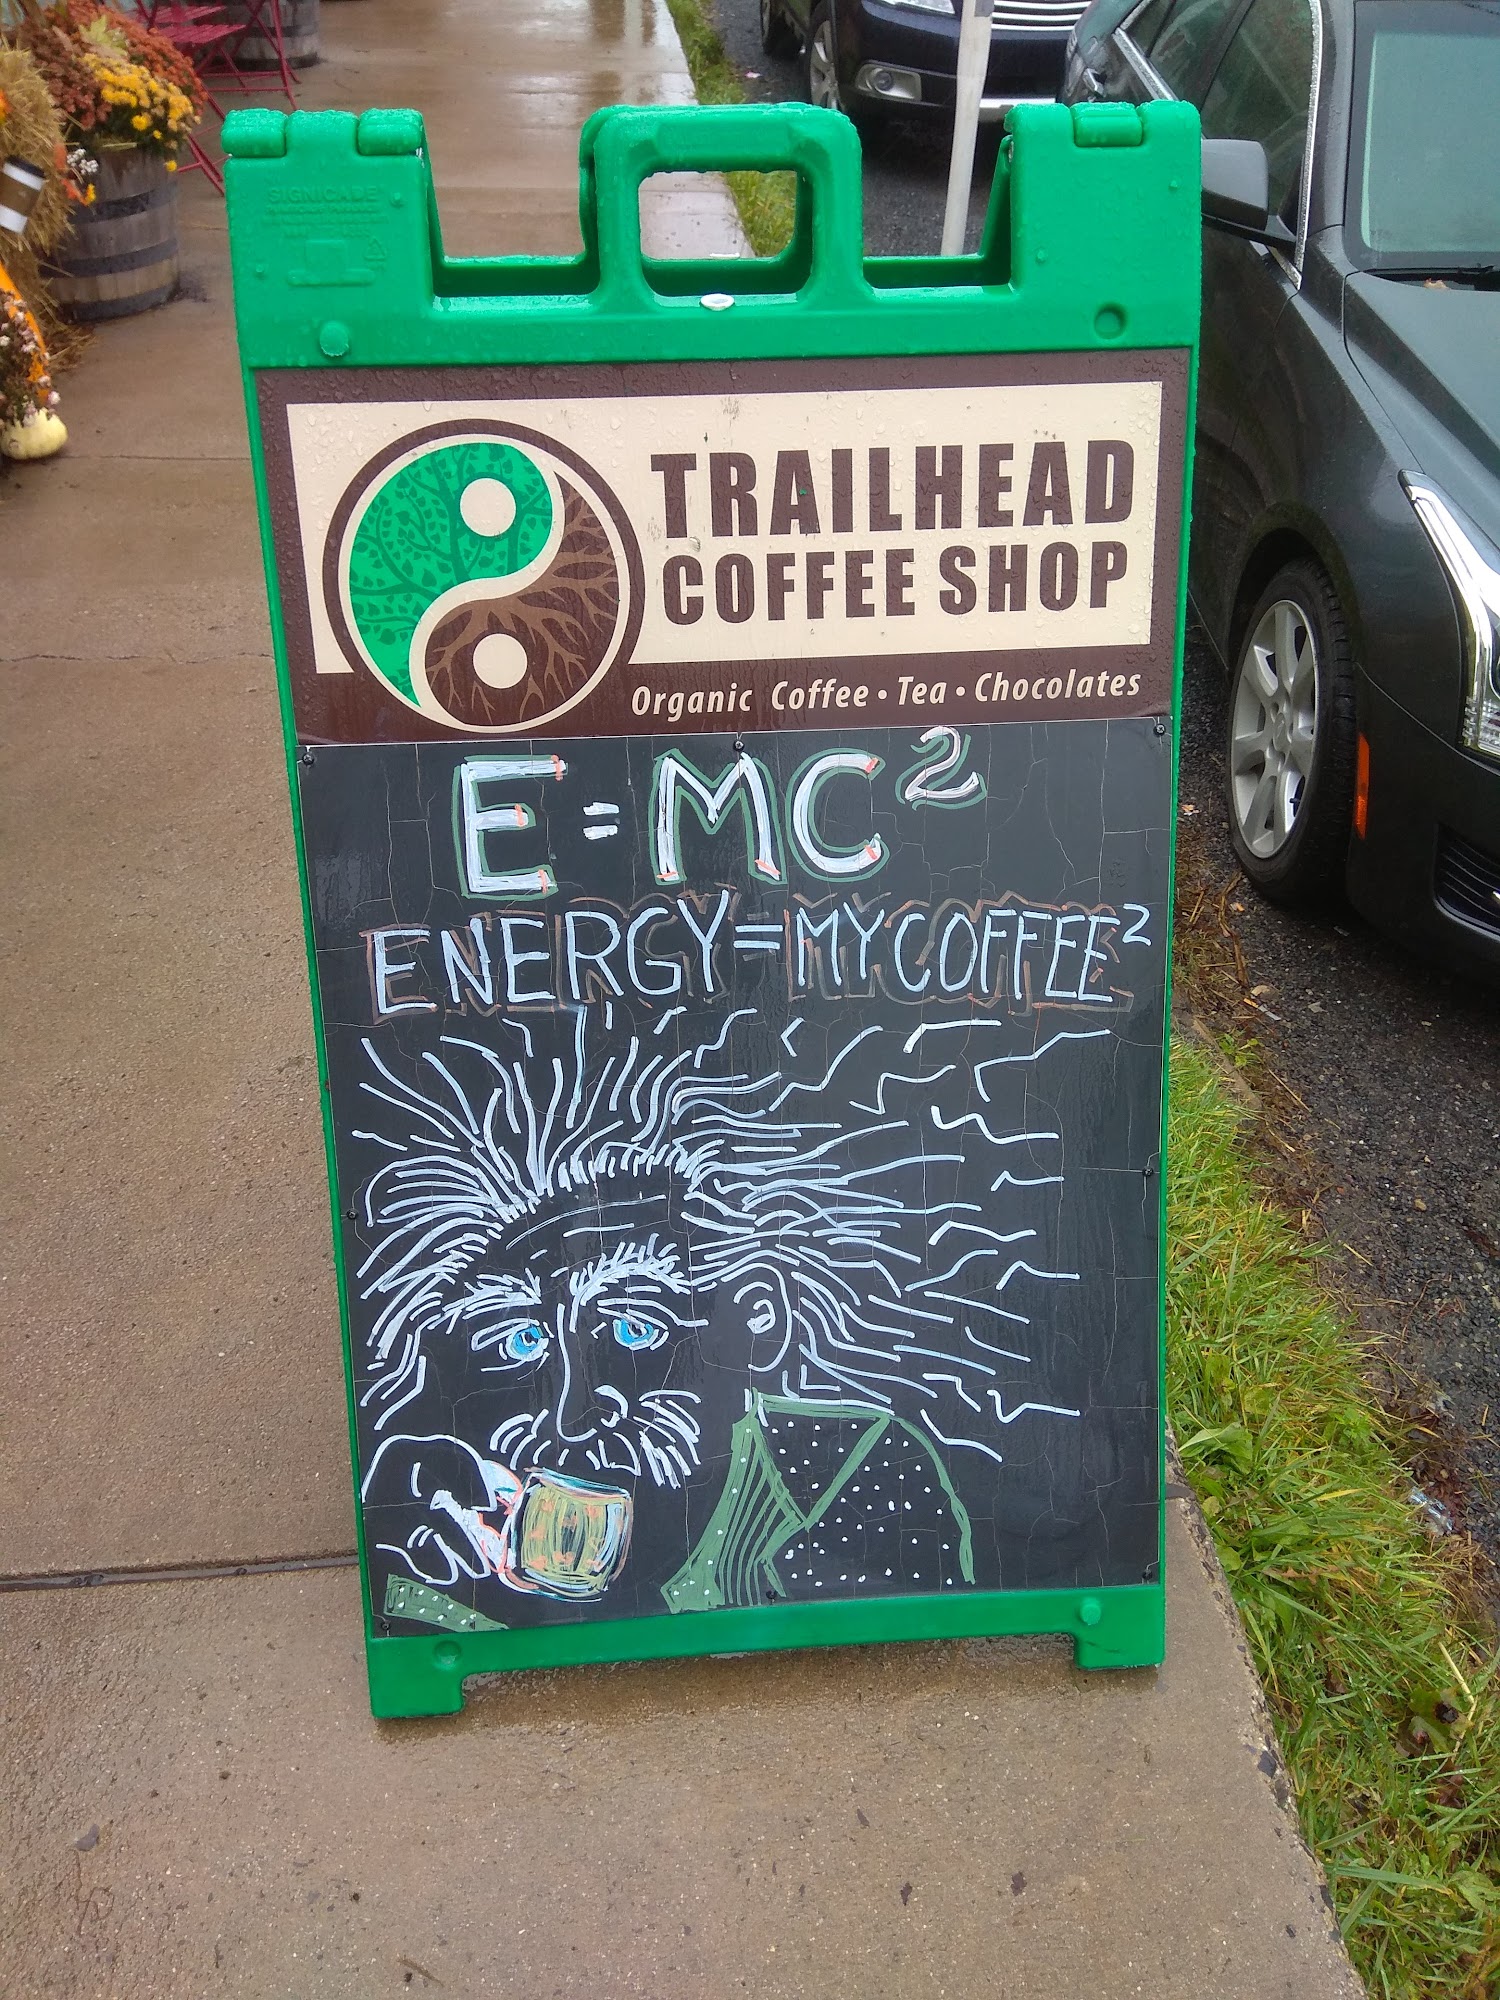 SIGNICADE
TRAILHEAD
COFFEE SHOP
Organic Coffee • Tea • Chocolates
E=MC²
ENERGY=MYCOFFEE²